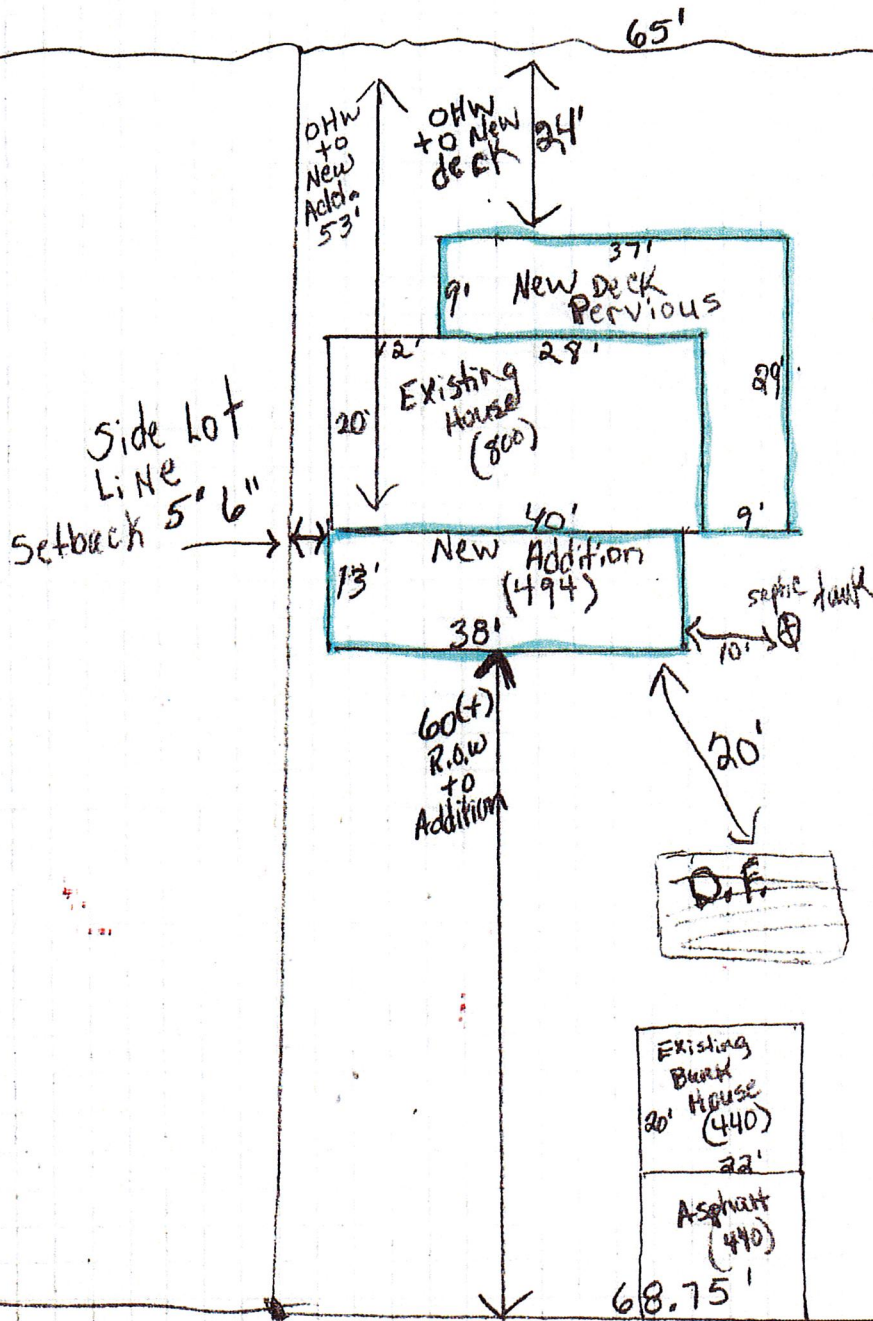 65'
OHW
to
New
Add.
53'
OHW
to New
deck
24'
37'
9'
New Deck
Pervious
12'
28'
29'
Existing
House
(800)
20'
Side Lot
Line
Setback 5' 6"
40'
9'
New Addition
(494)
13'
38'
septic tank
10'
60(+)
R.O.W
to
Addition
20'
D.F.
Existing
Bunk
House
20'
(440)
22'
Asphalt
(440)
68.75'